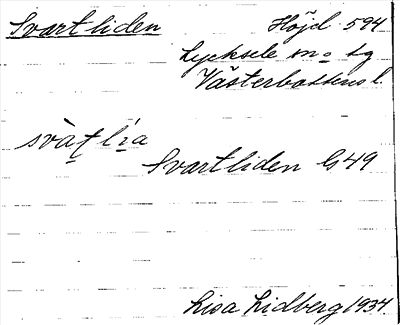 Svartliden Höjd 594
Lycksele sn o tg
Västerbottens l.
svàt̨ lìa
Svartliden G49
Lisa Lidberg 1934